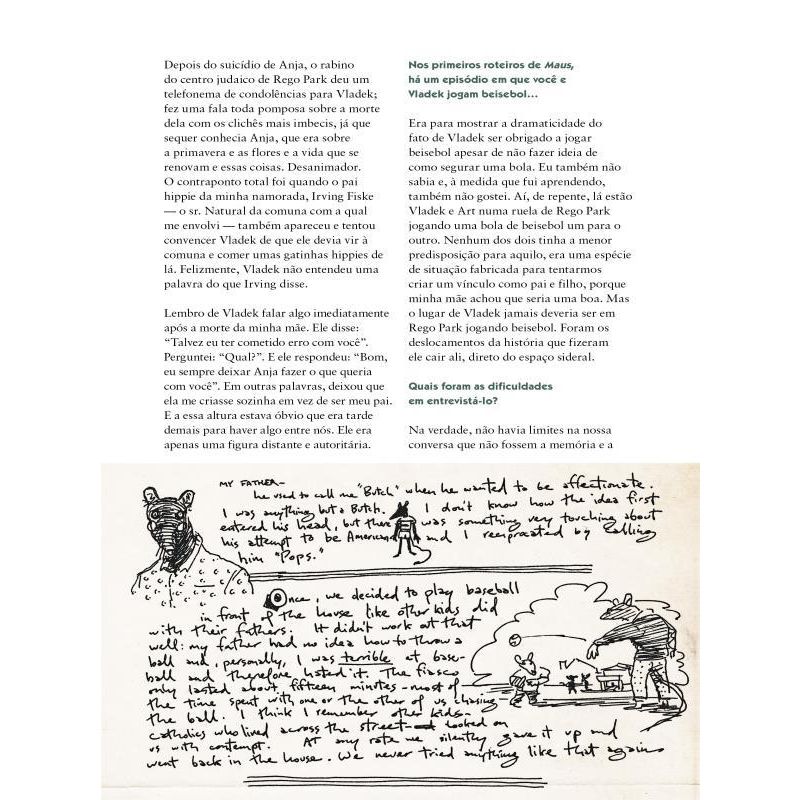 Depois do suicídio de Anja, o rabino
do centro judaico de Rego Park deu um
telefonema de condolências para Vladek;
fez uma fala toda pomposa sobre a morte
dela com os clichês mais imbecis, já que
sequer conhecia Anja, que era sobre
a primavera e as flores e a vida que se
renovam e essas coisas. Desanimador.
O contraponto total foi quando o pai
hippie da minha namorada, Irving Fiske
— o sr. Natural da comuna com a qual
me envolvi — também apareceu e tentou
convencer Vladek de que ele devia vir à
comuna e comer umas gatinhas hippies de
lá. Felizmente, Vladek não entendeu uma
palavra do que Irving disse.
Lembro de Vladek falar algo imediatamente
após a morte da minha mãe. Ele disse:
“Talvez eu ter cometido erro com você”.
Perguntei: “Qual?”. E ele respondeu: “Bom,
eu sempre deixar Anja fazer o que queria
com você”. Em outras palavras, deixou que
ela me criasse sozinha em vez de ser meu pai.
E a essa altura estava óbvio que era tarde
demais para haver algo entre nós. Ele era
apenas uma figura distante e autoritária.
Nos primeiros roteiros de Maus,
há um episódio em que você e
Vladek jogam beisebol...
Era para mostrar a dramaticidade do
fato de Vladek ser obrigado a jogar
beisebol apesar de não fazer ideia de
como segurar uma bola. Eu também não
sabia e, à medida que fui aprendendo,
também não gostei. Aí, de repente, lá estão
Vladek e Art numa ruela de Rego Park
jogando uma bola de beisebol um para o
outro. Nenhum dos dois tinha a menor
predisposição para aquilo, era uma espécie
de situação fabricada para tentarmos
criar um vínculo como pai e filho, porque
minha mãe achou que seria uma boa. Mas
o lugar de Vladek jamais deveria ser em
Rego Park jogando beisebol. Foram os
deslocamentos da história que fizeram
ele cair ali, direto do espaço sideral.
Quais foram as dificuldades
em entrevistá-lo?
Na verdade, não havia limites na nossa
conversa que não fossem a memória e a
MY FATHER—
he used to call me "Butch" when he wanted to be affectionate.
I was anything but a Butch. I don't know how the idea first
entered his head, but there was something very touching about
his attempt to be American and I reciprocated by calling
him "Pops."
Once, we decided to play baseball
in front of the house like other kids did
with their fathers. It didn't work out that
well: my father had no idea how to throw a
ball and, personally, I was terrible at base-
ball and therefore hated it. The fiasco
only lasted about fifteen minutes—most of
the time spent with one or the other of us chasing
the ball. I think I remember other kids-
catholics who lived across the street looked on
us with contempt. At any rate we silently gave it up and
went back in the house. We never tried anything like that again